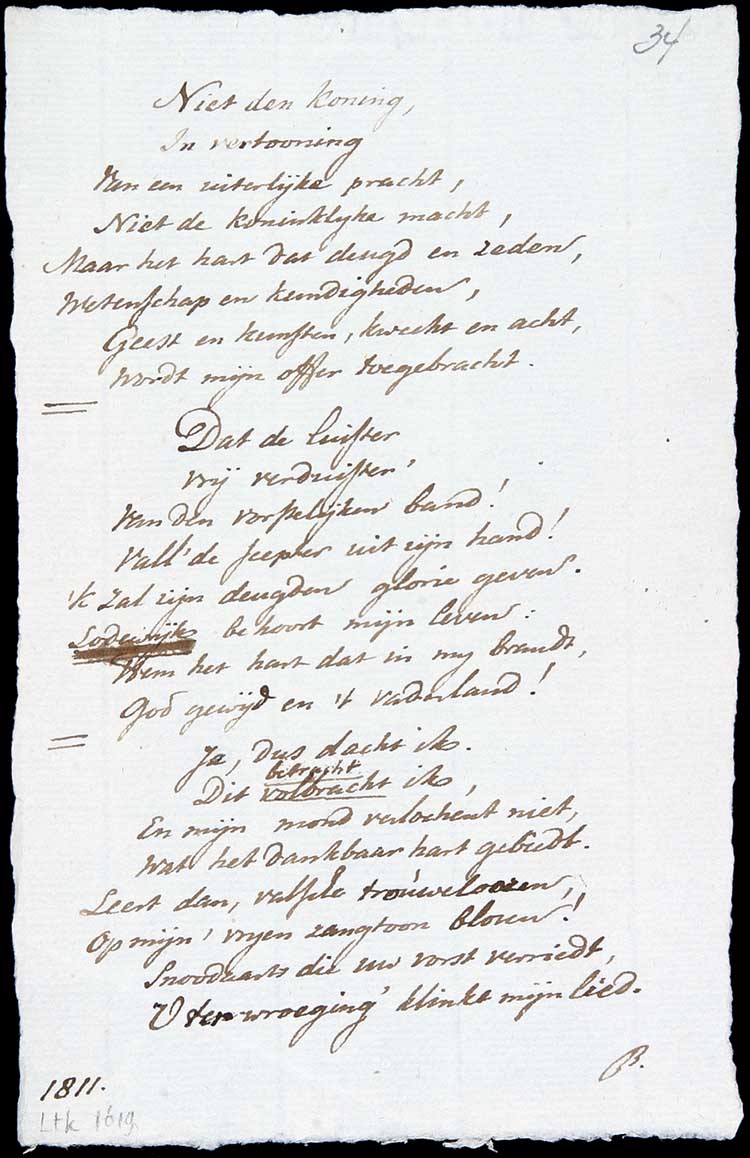 34
Niet den koning,
In vertooning
Van een uiterlijke pracht,
Niet de koninklyke macht,
Maar het hart dat deugd en zeden,
Wetenschap en kundigheden,
Geest en kunsten, kweekt en acht,
Wordt mijn offer toegebracht.
Dat de luister
vrij verduister'
Van den vorstelijken band!
Vall' de scepter uit zijn hand!
'k Zal zijn deugden glorie geven.
Lodewijk behoort mijn leven:
Hem het hart dat in my brandt,
God gewijd en 't vaderland!
Ja, dus dacht ik.
betracht
Dit volbracht ik,
En mijn mond verlochent niet,
Wat het dankbaar hart gebiedt.
Leert dan, valsche trouweloozen,
Op mijn' vryen zangtoon blozen!
Snoodaarts die uw vorst verriedt,
U ter wroeging' klinkt mijn lied.
B.
1811.
Ltk 1619